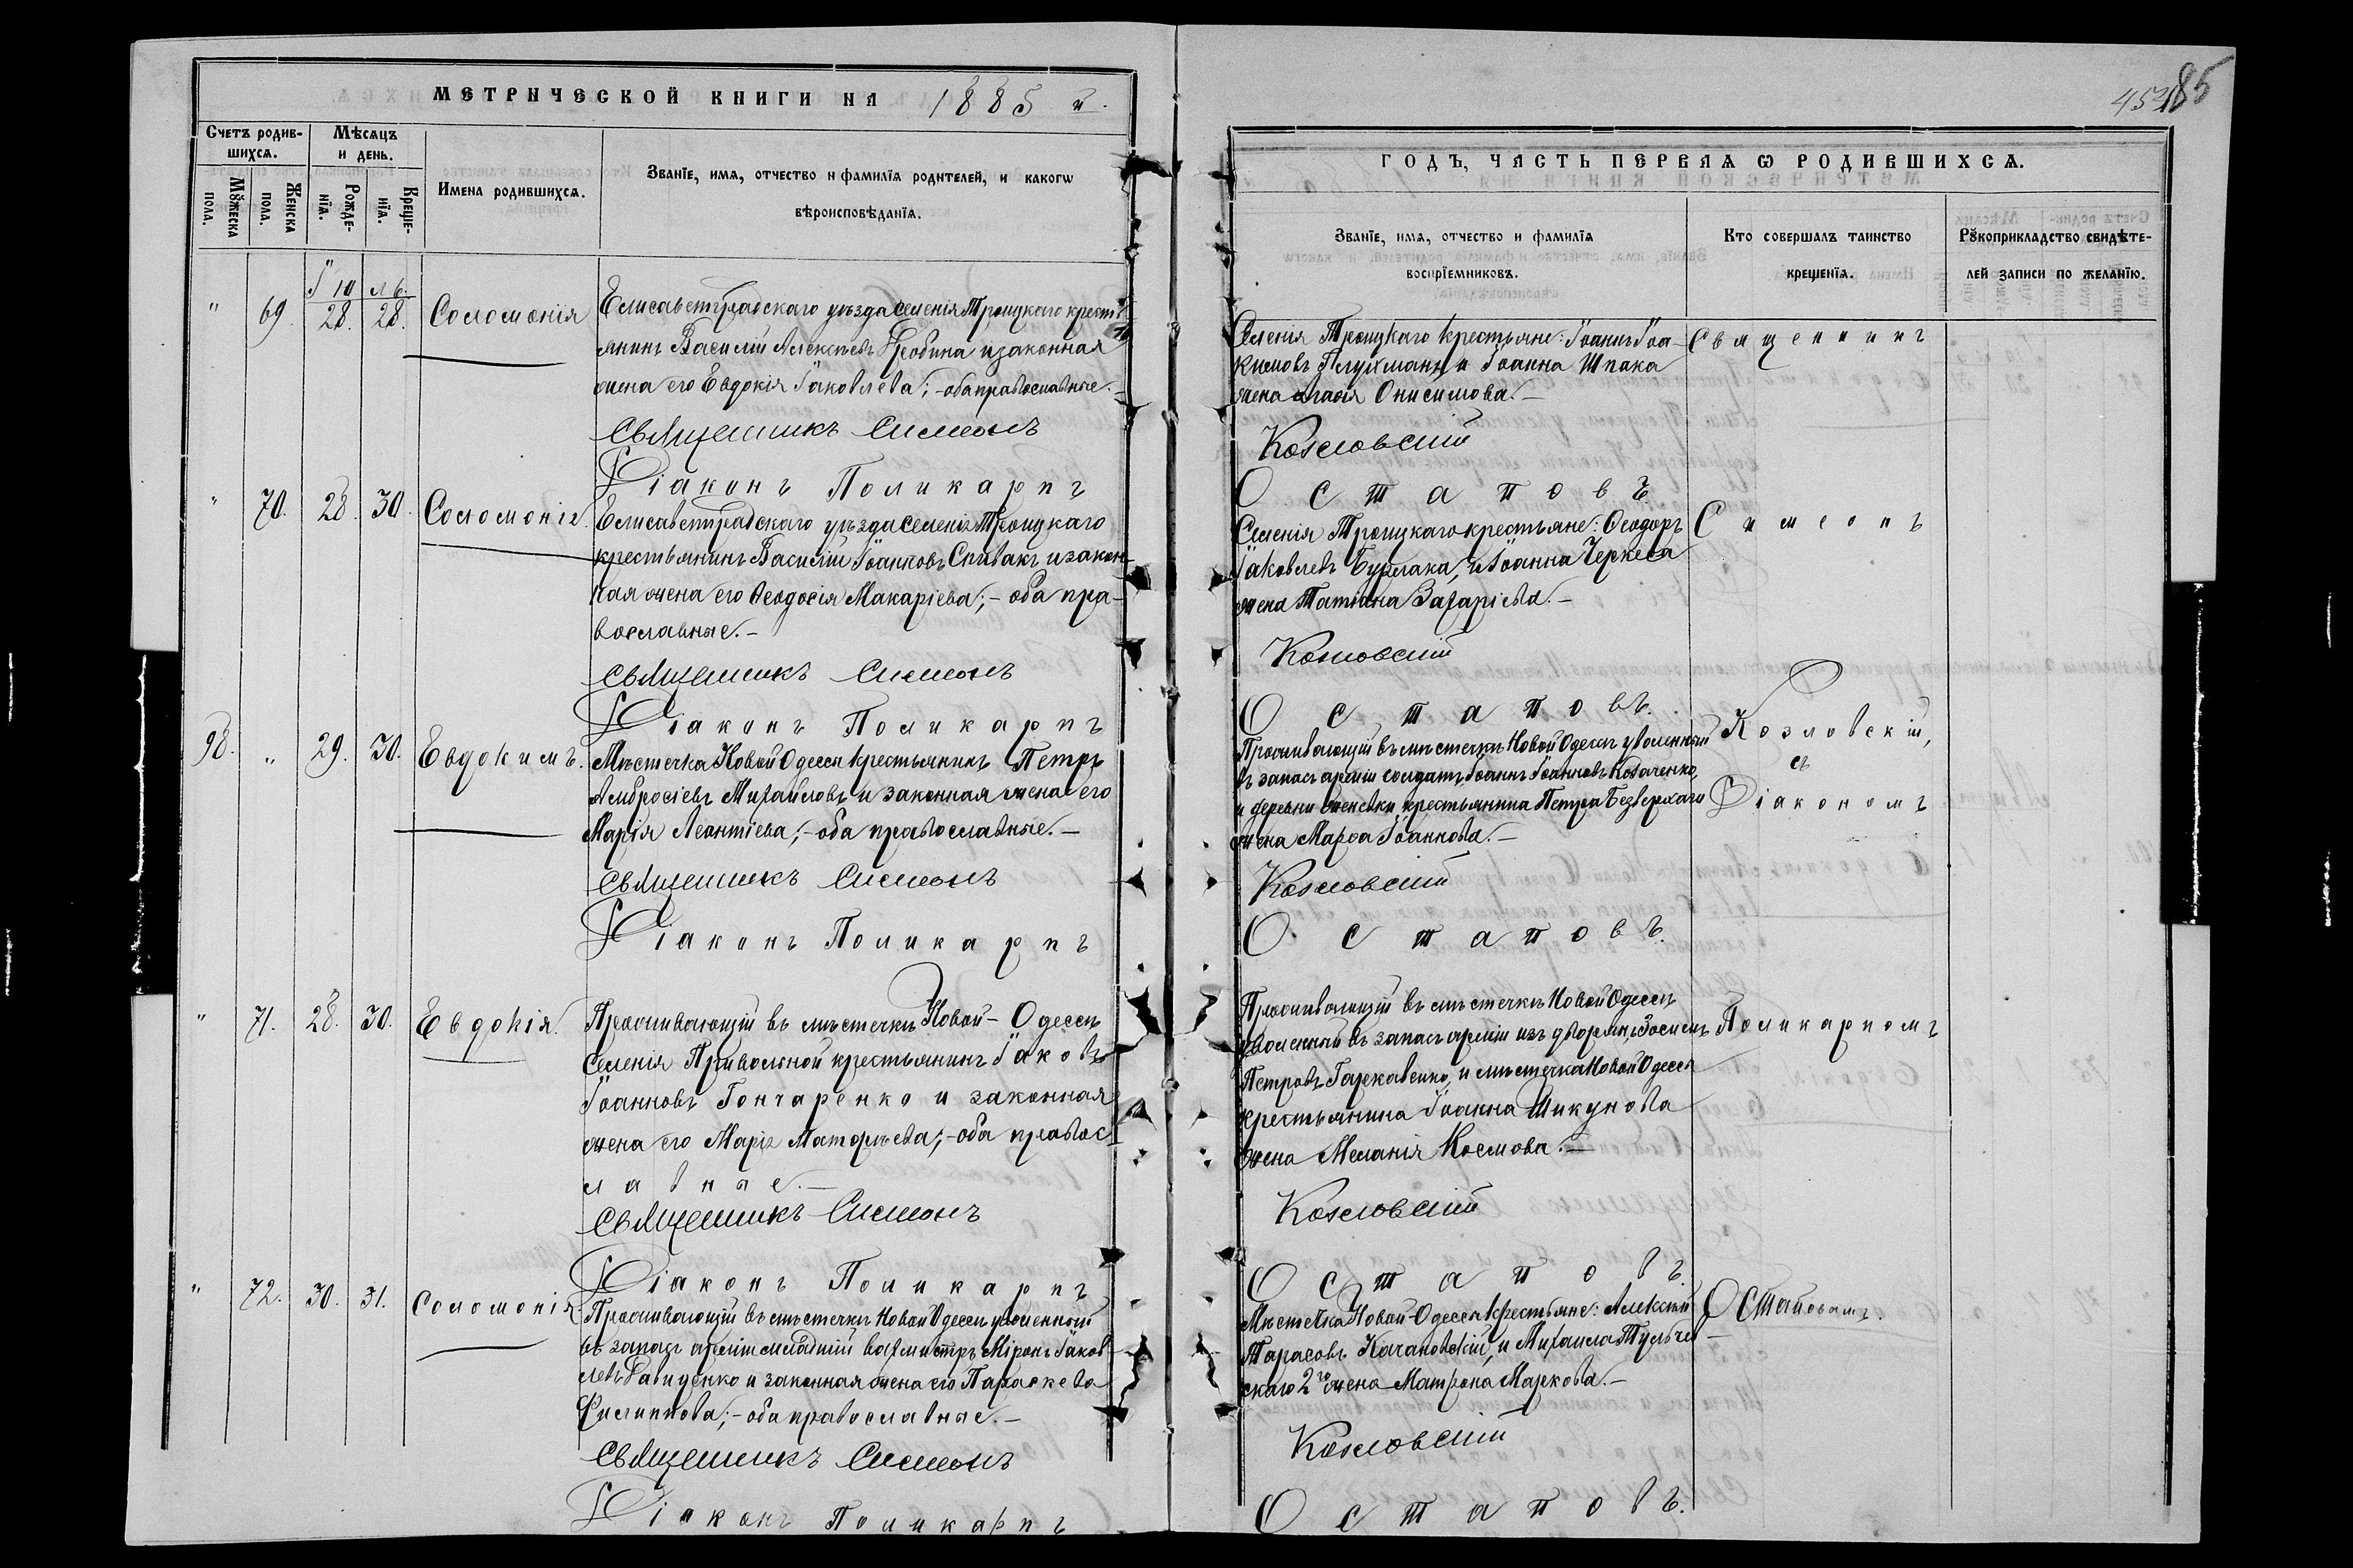 МЕТРИЧЕСКОЙ КНИГИ НА 1885 й.
Счетъ родив-
шихсѧ.
Мѣсѧцъ
и день.
Имена родившихсѧ.
Званїе, имѧ, отчество и фамилїѧ родителей, и какогѡ
вѣроисповѣданїѧ.
Мꙋжеска
пола.
Женска
пола.
Рожде-
нїѧ.
Креще-
нїѧ.
Іюль
" 69. 28. 28. Соломонія
Елисаветградскаго уѣзда селенія Троицкаго кресть-
янинъ Василій Алексѣевъ и законная
жена его Евдокія Іаковлева; - оба православные. -
Священникъ Симеонъ
Діаконъ Поликарпъ
" 70. 28. 30. Соломонія.
Елисаветградскаго уѣзда селенія Троицкаго
крестьянинъ Василій Іоанновъ Спивакъ и закон-
ная жена его Ѳеодосія Макаріева; - оба пра-
вославные. -
Священникъ Симеонъ
Діаконъ Поликарпъ
98. " 29. 30. Евдокимъ.
Мѣстечка Новой Одессы крестьянинъ Петръ
Амбросіевъ Михайловъ и законная жена его
Марія Леонтіева; - оба православные. -
Священникъ Симеонъ
Діаконъ Поликарпъ
" 71. 28. 30. Евдокія.
Проживающій въ мѣстечкѣ Новой-Одессѣ
селенія Привольной крестьянинъ Іаковъ
Іоанновъ Гончаренко и законная
жена его Марія Матѳѣева; - оба правос-
лавные. -
Священникъ Симеонъ
Діаконъ Поликарпъ
" 72. 30. 31. Соломонія.
Проживающій въ мѣстечкѣ Новой Одессѣ уволенный
въ запасъ арміи младшій вахмистръ Міронъ Іаков-
левъ Савиченко и законная жена его Параскева
Филиппова; - оба православные. -
Священникъ Симеонъ
Діаконъ Поликарпъ
85
ГОДЪ, ЧАСТЬ ПЕРВАѦ Ѡ РОДИВШИХСѦ.
Званїе, имѧ, отчество и фамилїѧ
воспрїемниковъ.
Кто совершалъ таинство
крещенїѧ.
Рꙋкоприкладство свидѣте-
лей записи по желанїю.
Селенія Троицкаго крестьяне: Іоаннъ Іоа-
кимовъ и Іоанна Шпака
жена Агафія Онисимова. -
Козловскій
Остаповъ.
Селенія Троицкаго крестьяне: Ѳеодоръ
Іаковлевъ Бурлака, и Іоанна Черкеса
жена Татіана Захаріева. -
Козловскій
Остаповъ.
Проживающій въ мѣстечкѣ Новой Одессѣ уволенный
въ запасъ арміи солдатъ Іоаннъ Іоанновъ Козаченко,
и деревни крестьянина Петра Безверхаго
жена Марѳа Іоаннова. -
Козловскій
Остаповъ.
Проживающій въ мѣстечкѣ Новой Одессѣ
уволенный въ запасъ арміи изъ дворянъ Зосимъ
Петровъ Гаркавенко, и мѣстечка Новой Одессы
крестьянина Іоанна Шикунова
жена Меланія Космова. -
Козловскій
Остаповъ.
Мѣстечка Новой-Одессы крестьяне: Алексѣй
Тарасовъ Качановскій, и Михаила Тульчев-
скаго 2го жена Матрона Маркова. -
Козловскій
Остаповъ.
Священникъ
Симеонъ
Козловскій,
съ
Діакономъ
Поликарпомъ
Остаповымъ.